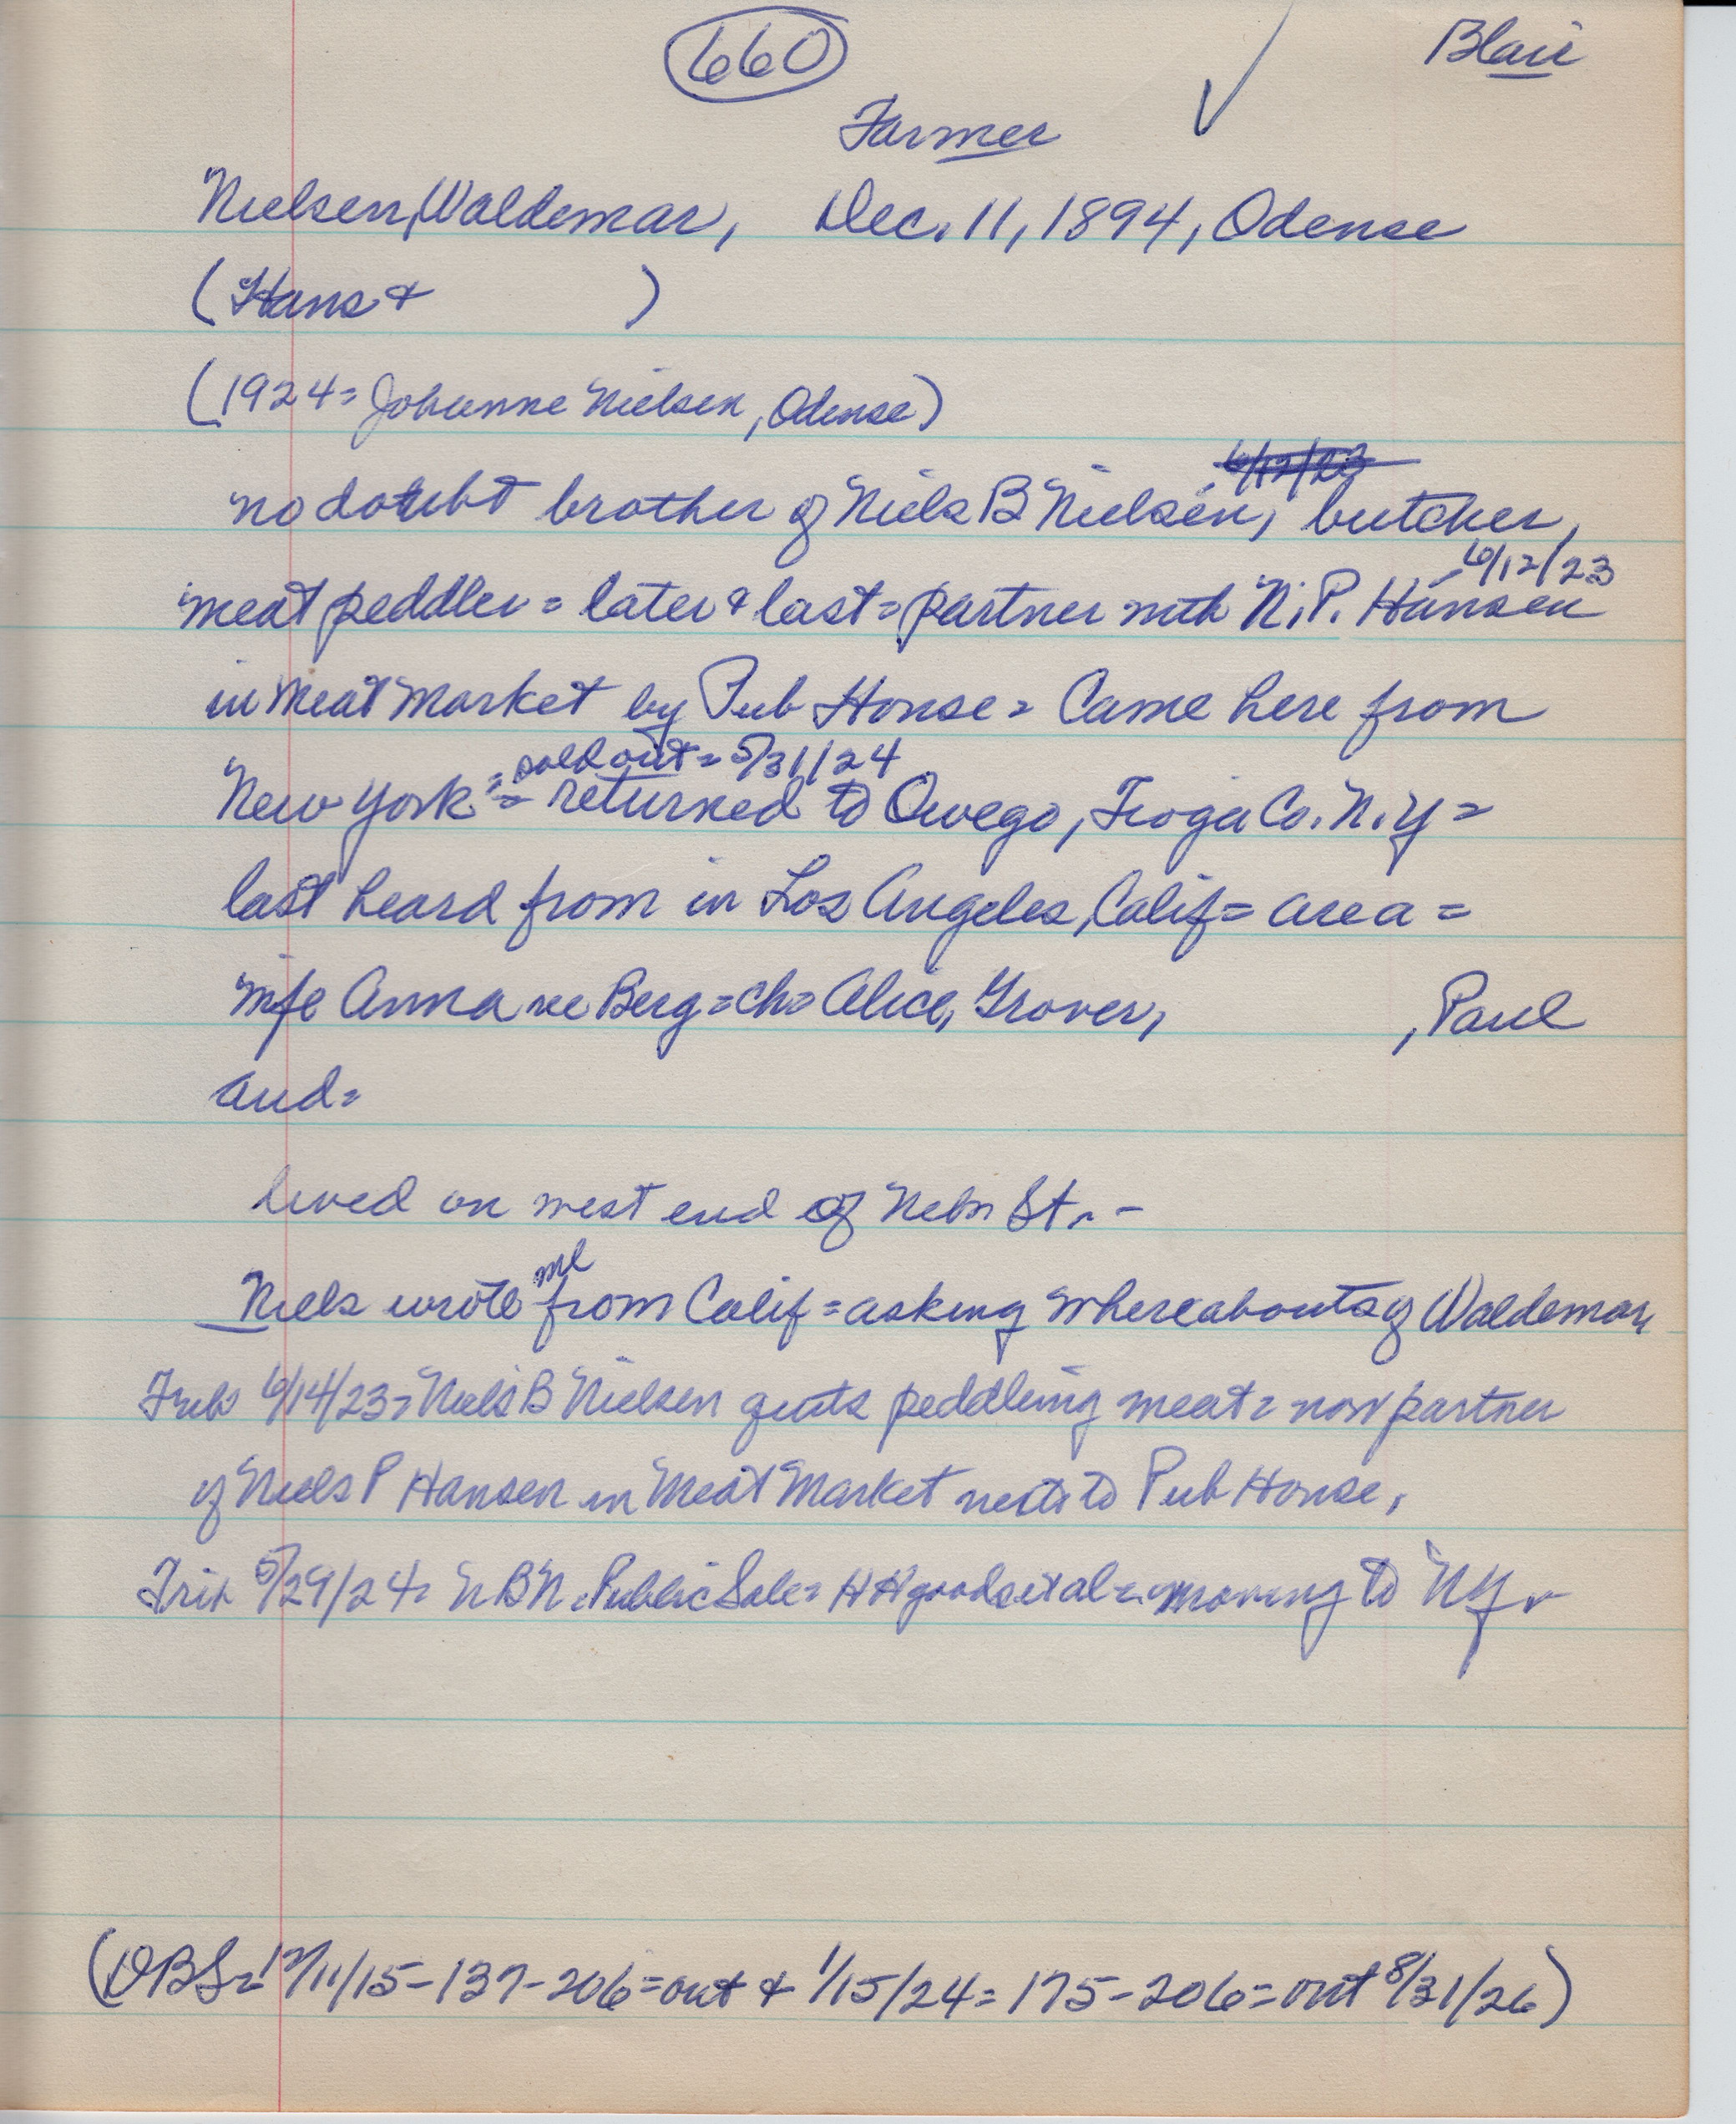 660
Blair
Farmer
Nielsen, Waldemar, Dec. 11, 1894, Odense
(Hans & )
(1924 = Johanne Nielsen, Odense)
6/12/23
no doubt brother of Niels B Nielsen, butcher,
6/12/23
meat peddler = later & last = partner with N.P. Hansen
in Meat Market by Pub House = Came here from
= sold out = 5/31/24
New York = returned to Owego, Tioga Co. N.Y =
last heard from in Los Angeles, Calif = area =
wife Anna ne Berg = ch = Alice, Grover, , Paul
and =
lived on west end of Nebr St. -
me
Niels wrote from Calif = asking whereabouts of Waldemar,
6/14/23 = Niels B Nielsen quits peddling meat = now partner
of Niels P Hansen in Meat Market next to Pub House,
5/29/24 = N B N. Public Sale = HH goods et al = moving to NY.
(DBS = 12/11/15 - 137 - 206 = out & 1/15/24 = 175 - 206 = out 8/31/26)